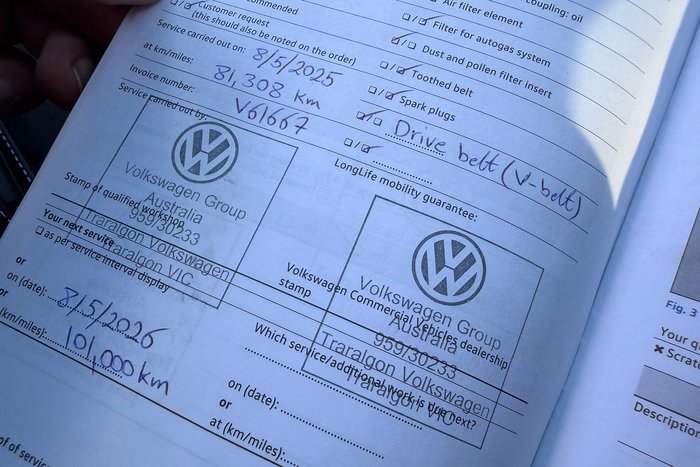 ommended
Customer request
(this should also be noted on the order)
Service carried out on: 8/5/2025
at km/miles: 81,308 km
Invoice number: V61667
Service carried out by:
Volkswagen Group
Australia
959/30233
Traralgon Volkswagen
Traralgon VIC
Stamp of qualified workshop
Your next service
as per service interval display
or
on (date): 8/5/2026
or
(km/miles): 101,000 km
coupling: oil
Air filter element
Filter for autogas system
Dust and pollen filter insert
Toothed belt
Spark plugs
Drive belt (V-belt)
LongLife mobility guarantee:
Volkswagen Group
Australia
959/30233
Traralgon Volkswagen
Traralgon VIC
Volkswagen Commercial Vehicles dealership
stamp
Which service/additional work is due next?
on (date):
or
at (km/miles):
of of service
Fig. 3
Scratc
Description